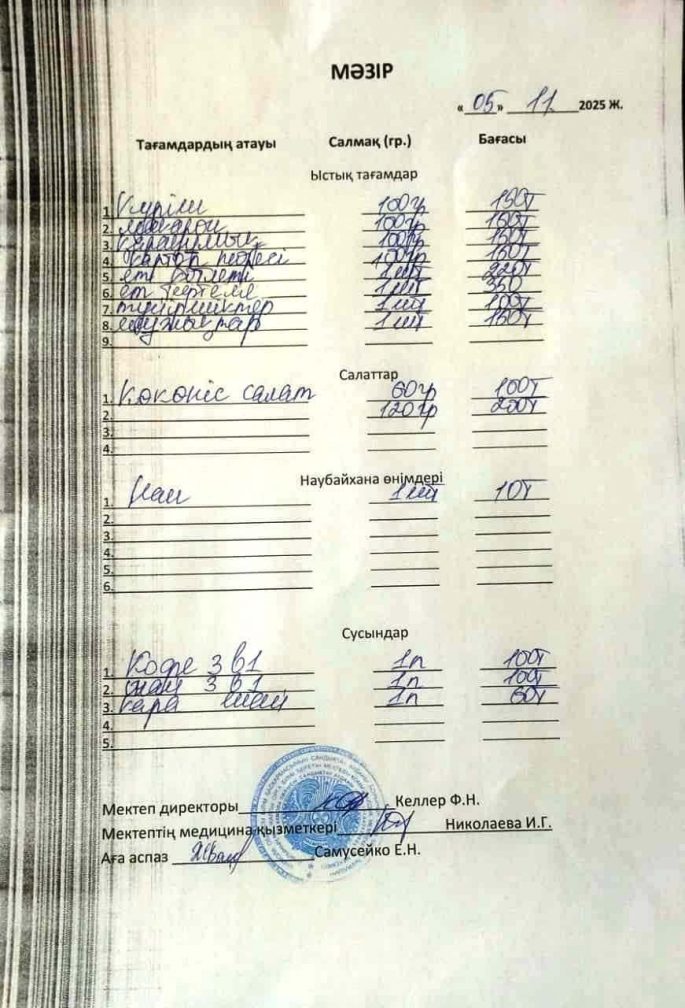 МӘЗІР
«05» 11. 2025 Ж.
Тағамдардың атауы Салмақ (гр.) Бағасы
Ыстық тағамдар
1. Күріш 100гр 150т
2. макарон 100гр 150т
3. қарақұмық 100гр 150т
4. картоп пюресі 100гр 150т
5. ет котлеті 1шт 220т
6. ет 1шт 350
7. 1шт 100т
8. шұжықтар 1шт 150т
9.
Салаттар
1. Көкөніс салат 60гр 100т
2. 120гр 200т
3.
4.
Наубайхана өнімдері
1. Нан 1шт 10т
2.
3.
4.
5.
6.
Сусындар
1. Кофе 3 в1 1п 100т
2. шай 3 в1 1п 100т
3. қара шай 1п 60т
4.
5.
Мектеп директоры Келлер Ф.Н.
Мектептің медицина қызметкері Николаева И.Г.
Аға аспаз Самусейко Е.Н.